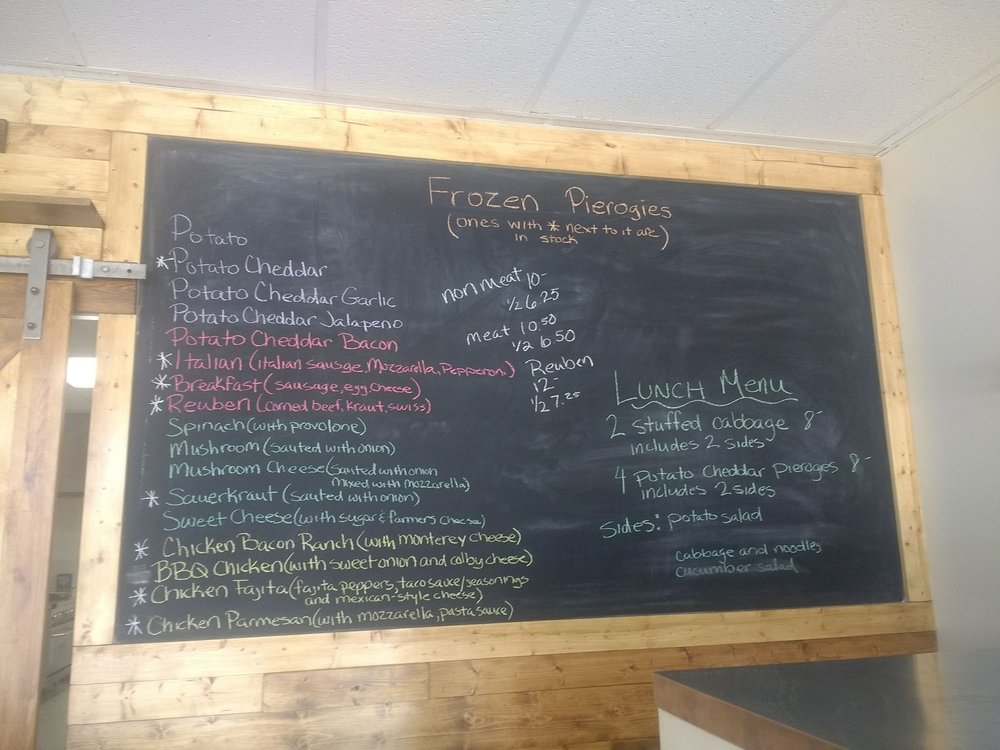 Frozen Pierogies
(ones with * next to it are
in stock)
Potato
*Potato Cheddar
Potato Cheddar Garlic
Potato Cheddar Jalapeno
Potato Cheddar Bacon
*Italian (italian sausge, Mozzarella, Pepperoni)
*Breakfast (sausage, egg, cheese)
*Reuben (corned beef, kraut, swiss)
Spinach (with provolone)
Mushroom (sauted with onion)
Mushroom Cheese (sauted with onion
mixed with mozzarella)
*Sauerkraut (sauted with onion)
Sweet Cheese (with sugar & farmers cheese)
*Chicken Bacon Ranch (with monterey cheese)
BBQ Chicken (with sweet onion and colby cheese)
*Chicken Fajita (fajita peppers, taco sauce/seasonings
and mexican-style cheese)
*Chicken Parmesan (with mozzarella, pasta sauce)
non meat 10-
1/2 6.25
meat 10.50
1/2 6.50
Reuben
12-
1/2 7.25
Lunch Menu
2 stuffed cabbage 8-
includes 2 sides
4 Potato Cheddar Pieroges 8-
includes 2 sides
Sides: potato salad
cabbage and noodles
cucumber salad